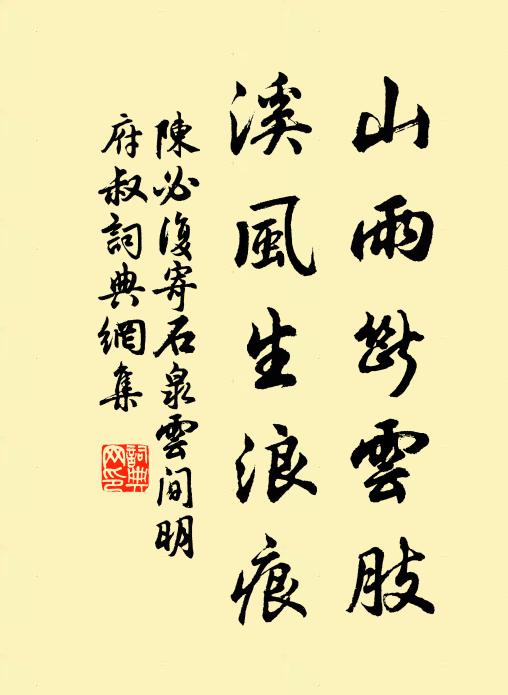 山雨斷雲肢
溪風生浪痕
陳必復寄石泉雲間明
府叔詞典網集
詞典网印